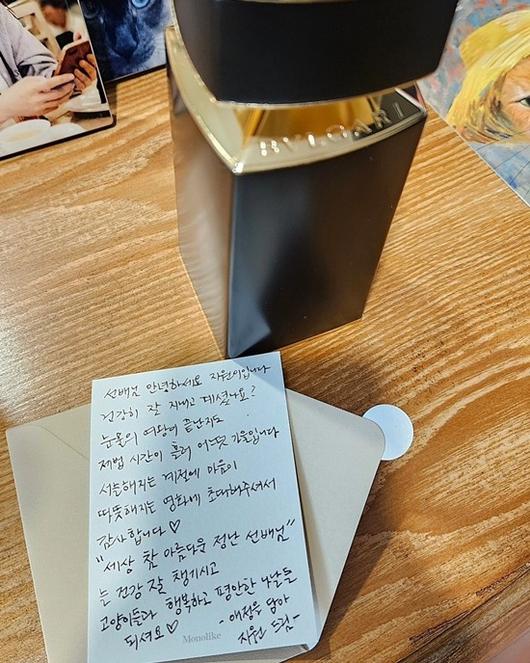 BVLGARI
선배님 안녕하세요 지원이입니다
건강히 잘 지내고 계셨나요?
눈물의 여왕이 끝난지도
제법 시간이 흘러 어느덧 가을입니다
서늘해지는 계절에 마음이
따뜻해지는 영화에 초대해주셔서
감사합니다♡
"세상 참 아름다운 정난 선배님"
늘 건강 잘 챙기시고
고양이들과 행복하고 평안한 나날들
되셔요♡
- 애정을 담아
지원 드림 -
Monolike